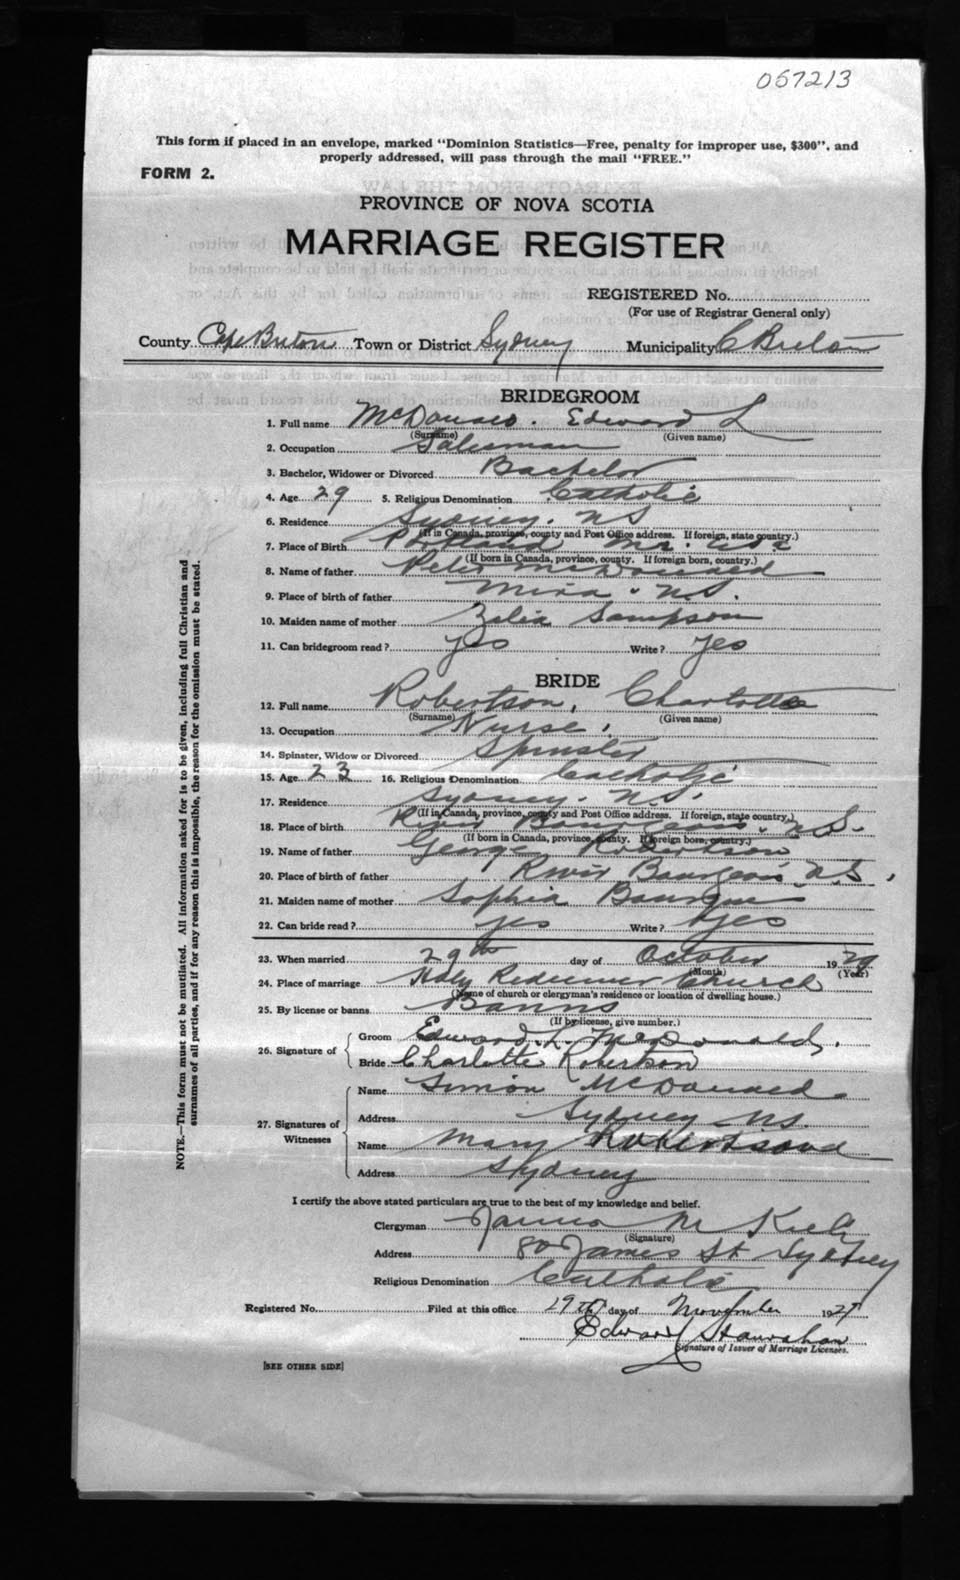 057213
This form if placed in an envelope, marked "Dominion Statistics—Free, penalty for improper use, $300", and
properly addressed, will pass through the mail "FREE."
FORM 2.
PROVINCE OF NOVA SCOTIA
MARRIAGE REGISTER
REGISTERED No.
(For use of Registrar General only)
County Cape Breton Town or District Sydney Municipality C Breton
BRIDEGROOM
1. Full name McDonald. Edward L
(Surname) (Given name)
2. Occupation Salesman
3. Bachelor, Widower or Divorced Bachelor
4. Age 29 5. Religious Denomination Catholic
6. Residence Sydney. N S
(If in Canada, province, county and Post Office address. If foreign, state country.)
7. Place of Birth Portland
(If born in Canada, province, county. If foreign born, country.)
8. Name of father Peter McDonald
9. Place of birth of father Mira. N.S.
10. Maiden name of mother Zelia Sampson
11. Can bridegroom read? yes Write? yes
BRIDE
12. Full name Robertson, Charlotte
(Surname) (Given name)
13. Occupation Nurse.
14. Spinster, Widow or Divorced Spinster
15. Age 23 16. Religious Denomination Catholic
17. Residence Sydney. N.S.
(If in Canada, province, county and Post Office address. If foreign, state country.)
18. Place of birth River Bourgeois. N.S.
(If born in Canada, province, county. If foreign born, country.)
19. Name of father George Robertson
20. Place of birth of father River Bourgeois N.S.
21. Maiden name of mother Sophia
22. Can bride read? yes Write? yes
23. When married 29th day of October 1929
(Month) (Year)
24. Place of marriage Holy Redeemer Church
(Name of church or clergyman's residence or location of dwelling house.)
25. By license or banns Banns
(If by license, give number.)
26. Signature of
Groom Edward. L. McDonald.
Bride Charlotte Robertson
27. Signatures of Witnesses
Name Simon McDonald
Address Sydney NS.
Name Mary
Address Sydney
I certify the above stated particulars are true to the best of my knowledge and belief.
Clergyman M Kiely
(Signature)
Address 80 James St Sydney
Religious Denomination Catholic
Registered No. Filed at this office 19th day of November 1929
Edward
Signature of Issuer of Marriage Licenses.
[SEE OTHER SIDE]
NOTE.—This form must not be mutilated. All information asked for is to be given, including full Christian and
surnames of all parties, and if for any reason this is impossible, the reason for the omission must be stated.